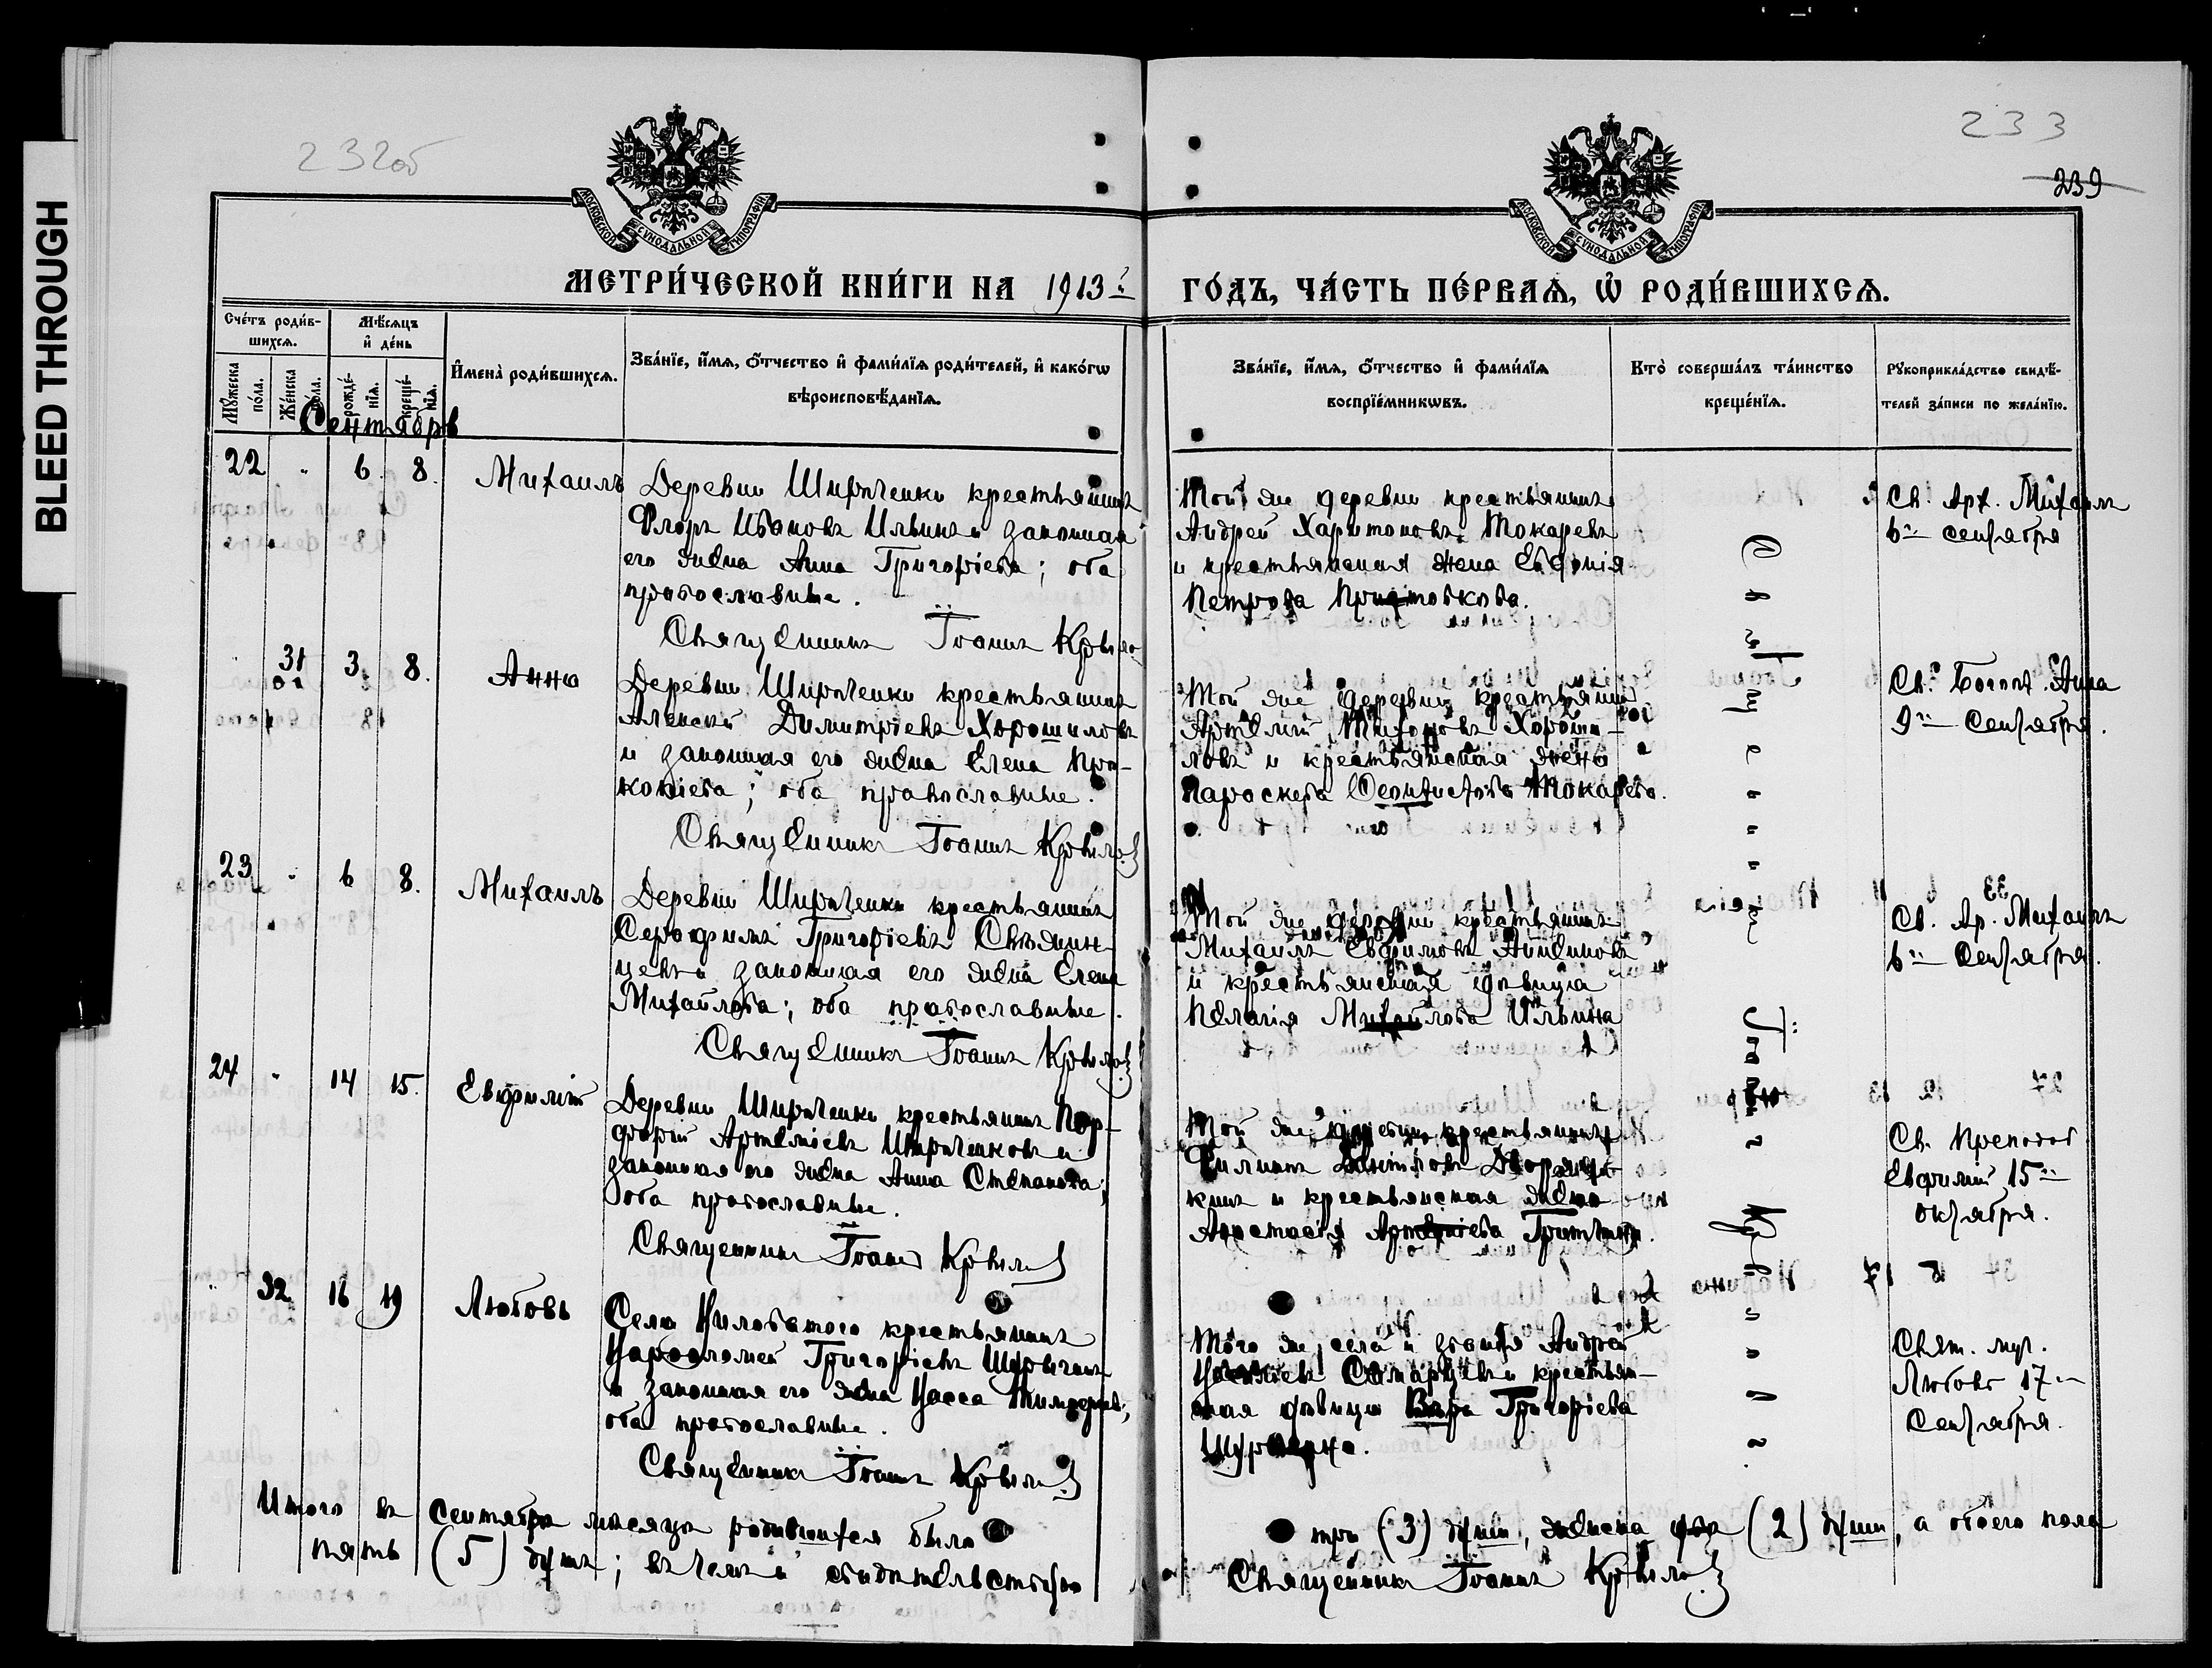 BLEED THROUGH
232об
233
239
МОСКОВСКОЙ СѴНОДАЛЬНОЙ ТИПОГРАФІИ
МОСКОВСКОЙ СѴНОДАЛЬНОЙ ТИПОГРАФІИ
МЕТРИ́ЧЕСКОЙ КНИ́ГИ НА 1913 г.
ГО́ДЪ, ЧА́СТЬ ПЕ́РВАѦ, Ѽ РОДИ́ВШИХСѦ.
Сче́тъ роди́в-
шихсѧ.
Мꙋ́жеска по́ла.
Же́нска по́ла.
Мѣ́сѧцъ
и҆ де́нь
рожде́-
нїѧ.
креще́-
нїѧ.
И҆мена̀ роди́вшихсѧ.
Зва́нїе, и҆́мѧ, ѻ҆́тчество и҆ фами́лїѧ роди́телей, и҆ како́гѡ
вѣроисповѣ́данїѧ.
Зва́нїе, и҆́мѧ, ѻ҆́тчество и҆ фами́лїѧ
воспрїе́мникѡвъ.
Кто̀ соверша́лъ та́инство
креще́нїѧ.
Рꙋкоприкла́дство свидѣ́-
телей за́писи по жела́нїю.
Сентябрь
22 " 6 8. Михаилъ
Деревни Широченки крестьянинъ
Флоръ Ивановъ Ильинъ и законная
его жена Анна Григорiева; оба
православные.
Священникъ Iоаннъ Крыло
Той же деревни крестьянинъ
Андрей Харитоновъ Токаревъ
и крестьянская жена Евфимiя
Петрова
Св. Арх. Михаилъ
6го сентября
" 31 3 8. Анна
Деревни Широченки крестьянинъ
Алексѣй Димитрiевъ Хорошиловъ
и законная его жена Елена Про-
копiева; оба православные.
Священникъ Iоаннъ Крылов
Той же деревни крестьянинъ
Артемiй Тихоновъ Хороши-
ловъ и крестьянская жена
Параскева Феоктистова Токарева.
Св. Богоот. Анна
9го Сентября.
23 " 6 8. Михаилъ
Деревни Широченки крестьянинъ
Серафимъ Григорiевъ
и законная его жена Елена
Михайлова; оба православные.
Священникъ Iоаннъ Крылов
Той же деревни крестьянинъ
Михаилъ Евфимовъ
и крестьянская дѣвица
Пелагiя Михайлова Ильина
Св. Ар. Михаилъ
6го Сентября.
24 " 14 15. Евфимiй
Деревни Широченки крестьянинъ Пор-
фирiй Артемiевъ Широченковъ и
законная его жена Анна Степанова;
оба православные.
Священникъ Iоаннъ Крылов
Той же деревни крестьянинъ
Филиппъ
и крестьянская жена
Анастасiя Артемiева
Св. Преподоб
Евфимiй 15го
октября.
" 32 16 19 Любовь
Села крестьянинъ
Григорiевъ
и законная его жена Васса
оба православные.
Священникъ Iоаннъ Крылов
Того же села и званiя Андрей
и крестьян-
ская дѣвица Вѣра Григорiева
Свят. муч.
Любовь 17го
Сентября.
Священникъ Iоаннъ Крыловъ.
Итого въ Сентябрѣ мѣсяцѣ родившихся было
три (3) души, женска два (2) души, а обоего пола
пять (5) душъ; въ чемъ и свидѣтельствую
Священникъ Iоаннъ Крылов